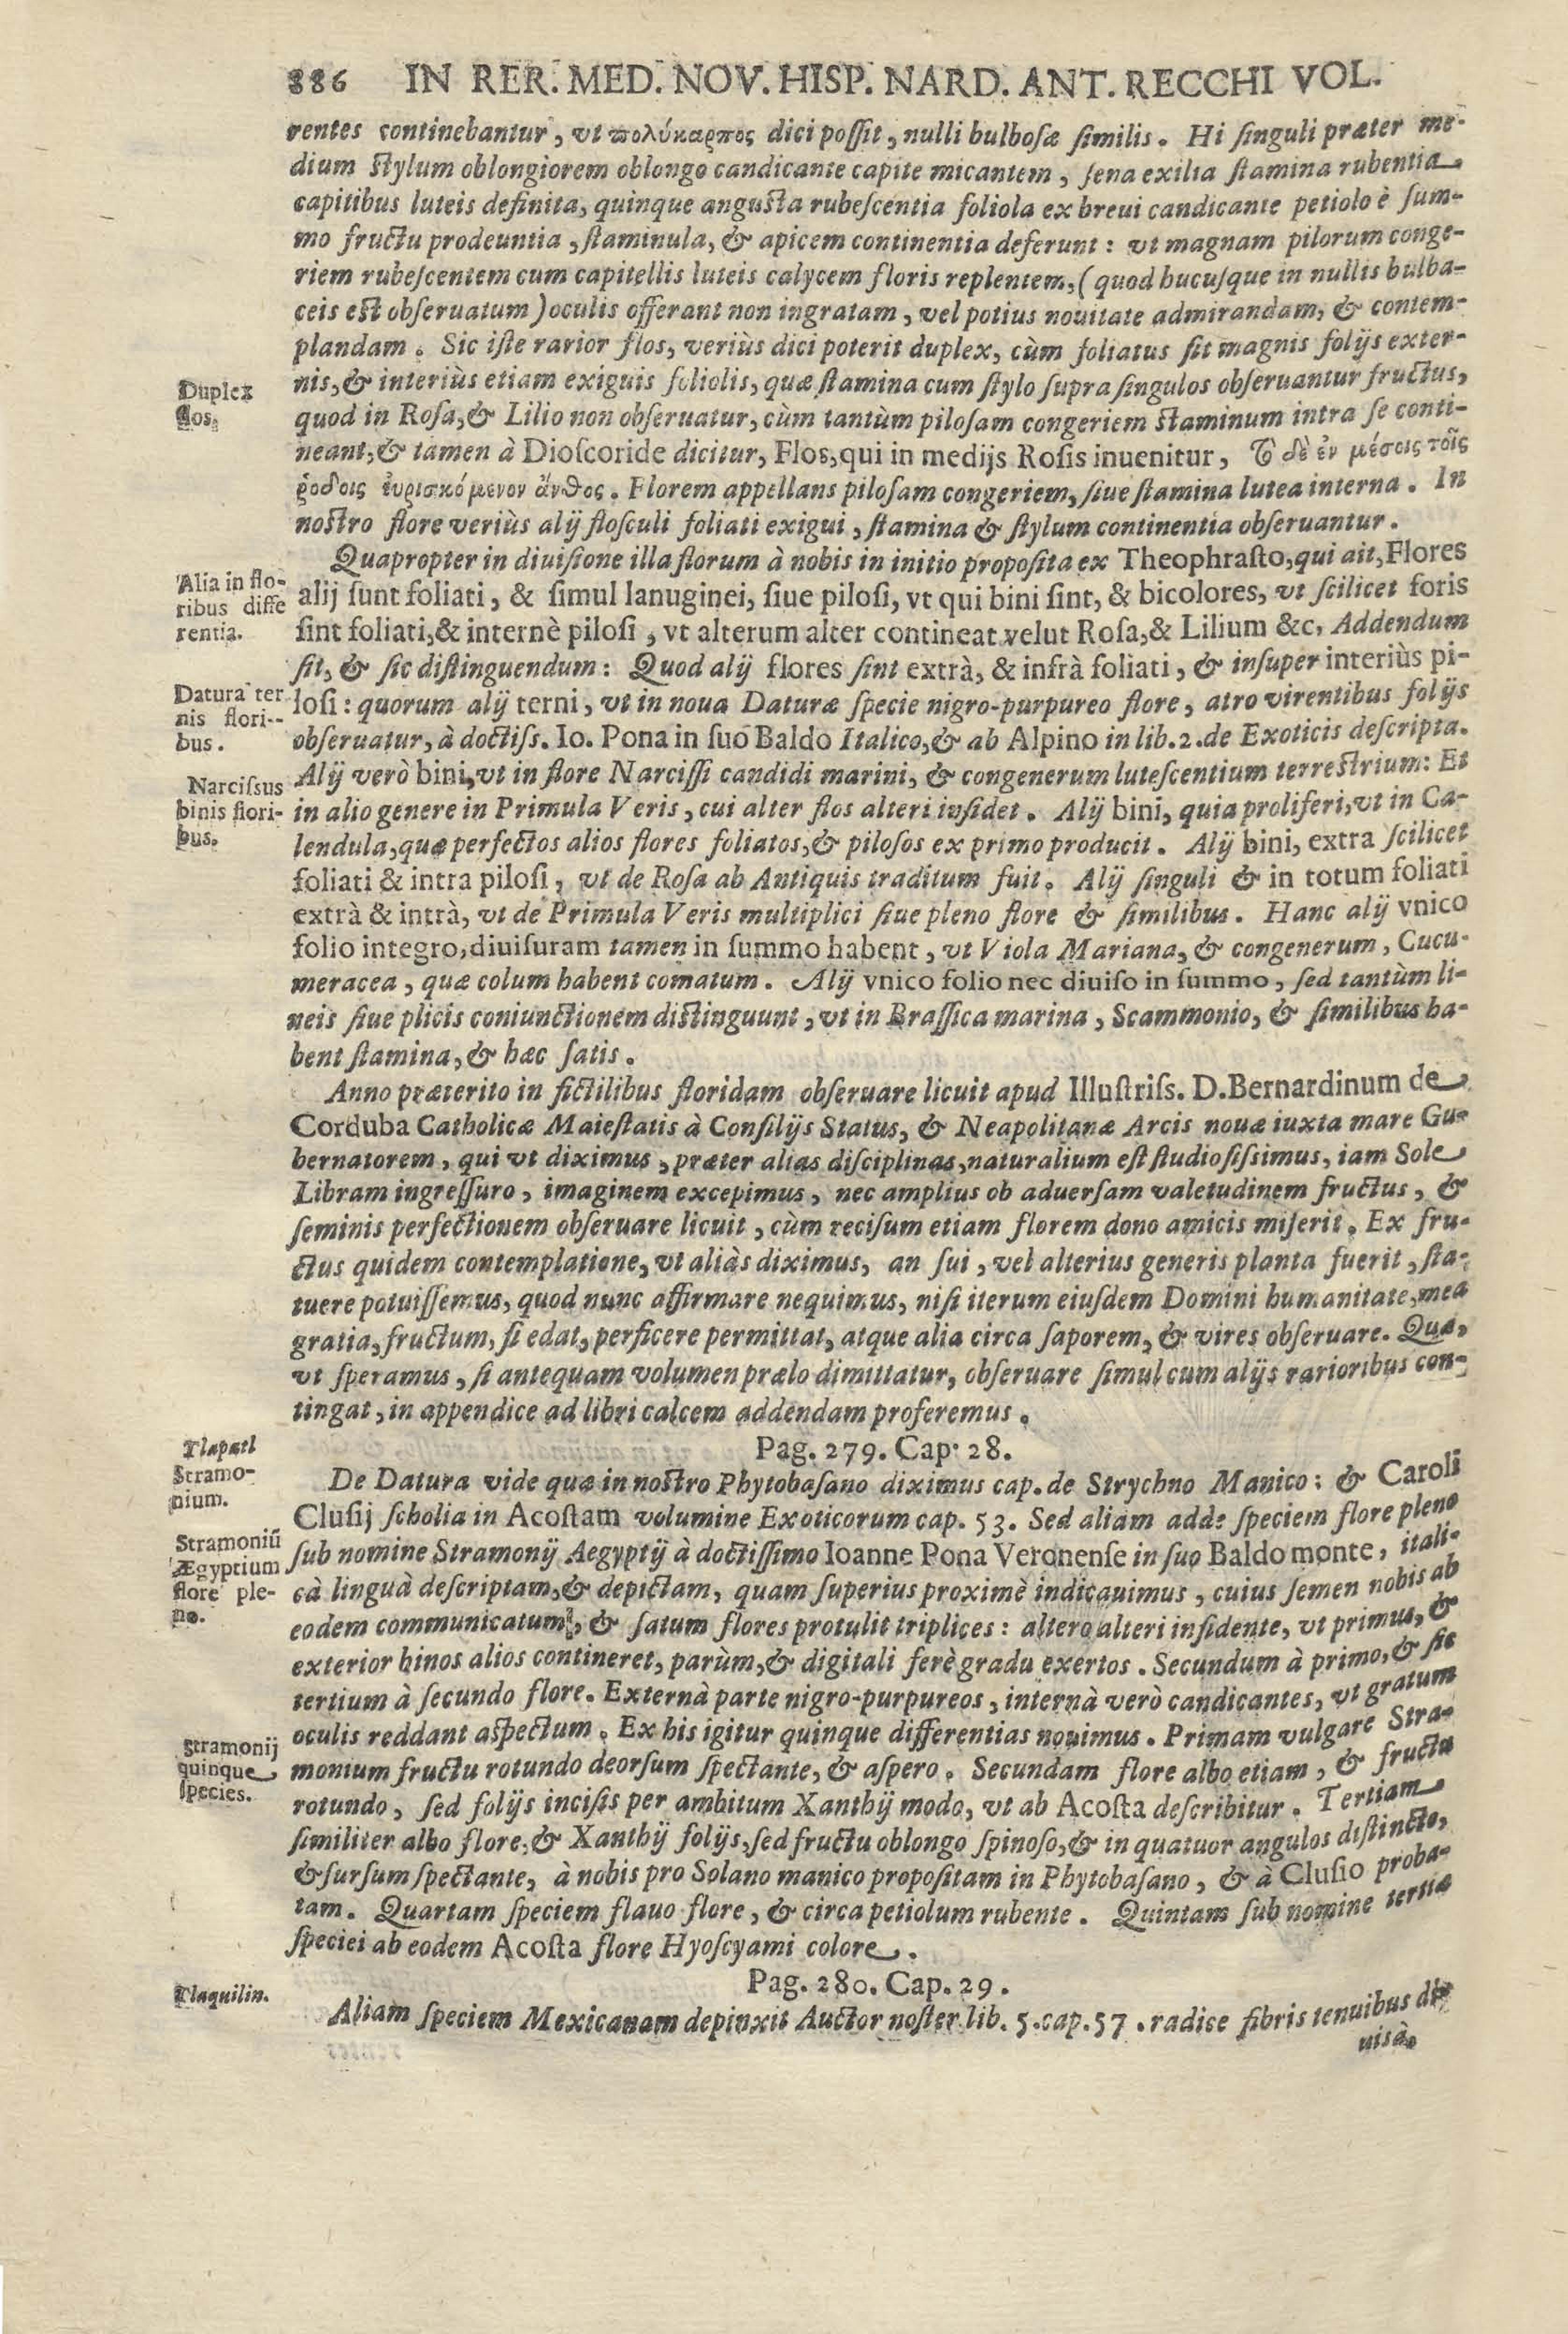 886 IN RER. MED. NOV. HISP. NARD. ANT. RECCHI VOL.
rentes continebantur, vt πολύκαρπος dici poſſit, nulli bulboſæ ſimilis. Hi ſinguli præter me-
dium ſtylum oblongiorem oblongo candicante capite micantem, ſena exilia ſtamina rubentia
capitibus luteis definita, quinque anguſta rubeſcentia foliola ex breui candicante petiolo è ſum-
mo fructu prodeuntia, ſtaminula, & apicem continentia deferunt: vt magnam pilorum conge-
riem rubeſcentem cum capitellis luteis calycem floris replentem, (quod hucuſque in nullis bulba-
ceis eſt obſeruatum) oculis offerant non ingratam, vel potius nouitate admirandam, & contem-
plandam. Sic iſte rarior flos, veriùs dici poterit duplex, cùm foliatus ſit magnis folijs exter-
Duplex
flos.
nis, & interiùs etiam exiguis foliolis, quæ ſtamina cum ſtylo ſupra ſingulos obſeruantur fructus,
quod in Roſa, & Lilio non obſeruatur, cùm tantùm piloſam congeriem ſtaminum intra ſe conti-
neant, & tamen à Dioſcoride dicitur, Flos, qui in medijs Roſis inuenitur, Τὸ δὲ ἐν μέσοις τοῖς
ῥόδοις ἑυρισκόμενον ἄνθος. Florem appellans piloſam congeriem, ſiue ſtamina lutea interna. In
noſtro flore veriùs alij floſculi foliati exigui, ſtamina & ſtylum continentia obſeruantur.
Quapropter in diuiſione illa florum à nobis in initio propoſita ex Theophraſto, qui ait, Flores
Alia in flo-
ribus diffe
rentia.
alij ſunt foliati, & ſimul lanuginei, ſiue piloſi, vt qui bini ſint, & bicolores, vt ſcilicet foris
ſint foliati, & internè piloſi, vt alterum alter contineat velut Roſa, & Lilium &c. Addendum
ſit, & ſic diſtinguendum: Quod alij flores ſint extrà, & infrà foliati, & inſuper interiùs pi-
Datura ter
nis flori-
bus.
loſi: quorum alij terni, vt in noua Daturæ ſpecie nigro-purpureo flore, atro virentibus folijs
obſeruatur, à doctiſs. Io. Pona in ſuo Baldo Italico, & ab Alpino in lib. 2. de Exoticis deſcripta.
Narciſsus
binis flori-
bus.
Alij verò bini, vt in flore Narciſſi candidi marini, & congenerum luteſcentium terreſtrium: Et
in alio genere in Primula Veris, cui alter flos alteri inſidet. Alij bini, quia proliferi, vt in Ca-
lendula, quæ perfectos alios flores foliatos, & piloſos ex primo producit. Alij bini, extra ſcilicet
foliati & intra piloſi, vt de Roſa ab Antiquis traditum fuit. Alij ſinguli & in totum foliati
extrà & intrà, vt de Primula Veris multiplici ſiue pleno flore & ſimilibus. Hanc alij vnico
folio integro, diuiſuram tamen in ſummo habent, vt Viola Mariana, & congenerum, Cucu-
meracea, quæ colum habent comatum. Alij vnico folio nec diuiſo in ſummo, ſed tantùm li-
neis ſiue plicis coniunctionem diſtinguunt, vt in Braſſica marina, Scammonio, & ſimilibus ha-
bent ſtamina, & hæc ſatis.
Anno præterito in fictilibus floridam obſeruare licuit apud Illuſtriſs. D. Bernardinum de
Corduba Catholicæ Maieſtatis à Conſilijs Status, & Neapolitanæ Arcis nouæ iuxta mare Gu-
bernatorem, qui vt diximus, præter alias diſciplinas, naturalium eſt ſtudioſiſsimus, iam Sole
Libram ingreſſuro, imaginem excepimus, nec amplius ob aduerſam valetudinem fructus, &
ſeminis perfectionem obſeruare licuit, cùm reciſum etiam florem dono amicis miſerit. Ex fru-
ctus quidem contemplatione, vt aliàs diximus, an ſui, vel alterius generis planta fuerit, ſta-
tuere potuiſſemus, quod nunc affirmare nequimus, niſi iterum eiuſdem Domini humanitate, mea
gratia, fructum, ſi edat, perficere permittat, atque alia circa ſaporem, & vires obſeruare. Quæ,
vt ſperamus, ſi antequam volumen prælo dimittatur, obſeruare ſimul cum alijs rarioribus con-
tingat, in appendice ad libri calcem addendam proferemus.
Pag. 279. Cap. 28.
Tlapatl
Stramo-
nium.
De Datura vide quæ in noſtro Phytobaſano diximus cap. de Strychno Manico: & Caroli
Cluſij ſcholia in Acoſtam volumine Exoticorum cap. 53. Sed aliam adde ſpeciem flore pleno
Stramoniū
Ægyptium
flore ple-
no.
ſub nomine Stramonij Aegyptij à doctiſſimo Ioanne Pona Veronenſe in ſuo Baldo monte, itali-
cà linguà deſcriptam, & depictam, quam ſuperius proximè indicauimus, cuius ſemen nobis ab
eodem communicatum, & ſatum flores protulit triplices: altero alteri inſidente, vt primus, &
exterior binos alios contineret, parùm, & digitali ferè gradu exertos. Secundum à primo, & ſic
tertium à ſecundo flore. Externà parte nigro-purpureos, internà verò candicantes, vt gratum
oculis reddant aſpectum. Ex his igitur quinque differentias nouimus. Primam vulgare Stra-
Stramonij
quinque
ſpecies.
monium fructu rotundo deorſum ſpectante, & aſpero. Secundam flore albo etiam, & fructu
rotundo, ſed folijs inciſis per ambitum Xanthij modo, vt ab Acoſta deſcribitur. Tertiam
ſimiliter albo flore, & Xanthij folijs, ſed fructu oblongo ſpinoſo, & in quatuor angulos diſtincto,
& ſurſum ſpectante, à nobis pro Solano manico propoſitam in Phytobaſano, & à Cluſio proba-
tam. Quartam ſpeciem flauo flore, & circa petiolum rubente. Quintam ſub nomine tertiæ
ſpeciei ab eodem Acoſta flore Hyoſcyami colore.
Pag. 280. Cap. 29.
Tlaquilin.
Aliam ſpeciem Mexicanam depinxit Auctor noſter lib. 5. cap. 57. radice fibris tenuibus di-
uisà,